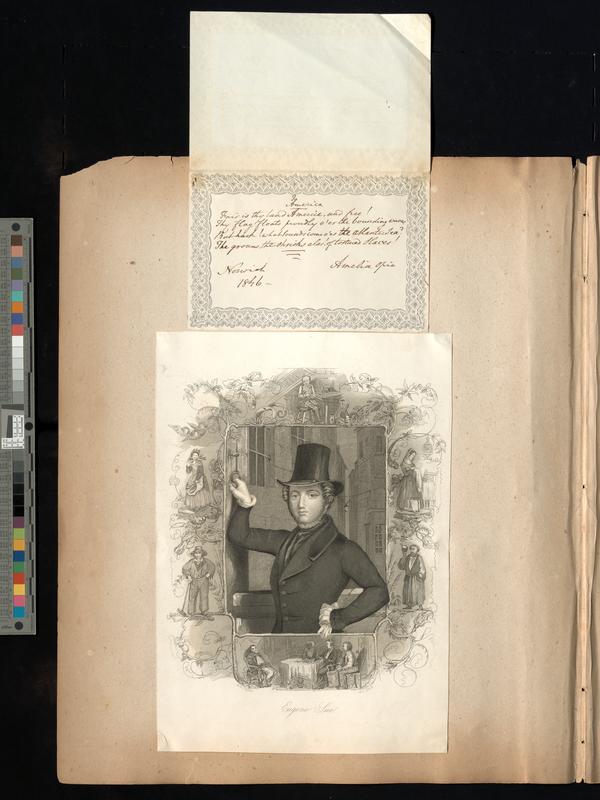 America
Fair is thy land America, and free!
Thy flag floats proudly o'er the bounding
But hark! what sounds come o'er the Atlantic sea?
The groans, the shrieks alas! of tortured Slaves!
Norwich
Amelia Opie
1846 –
Eugene Sue